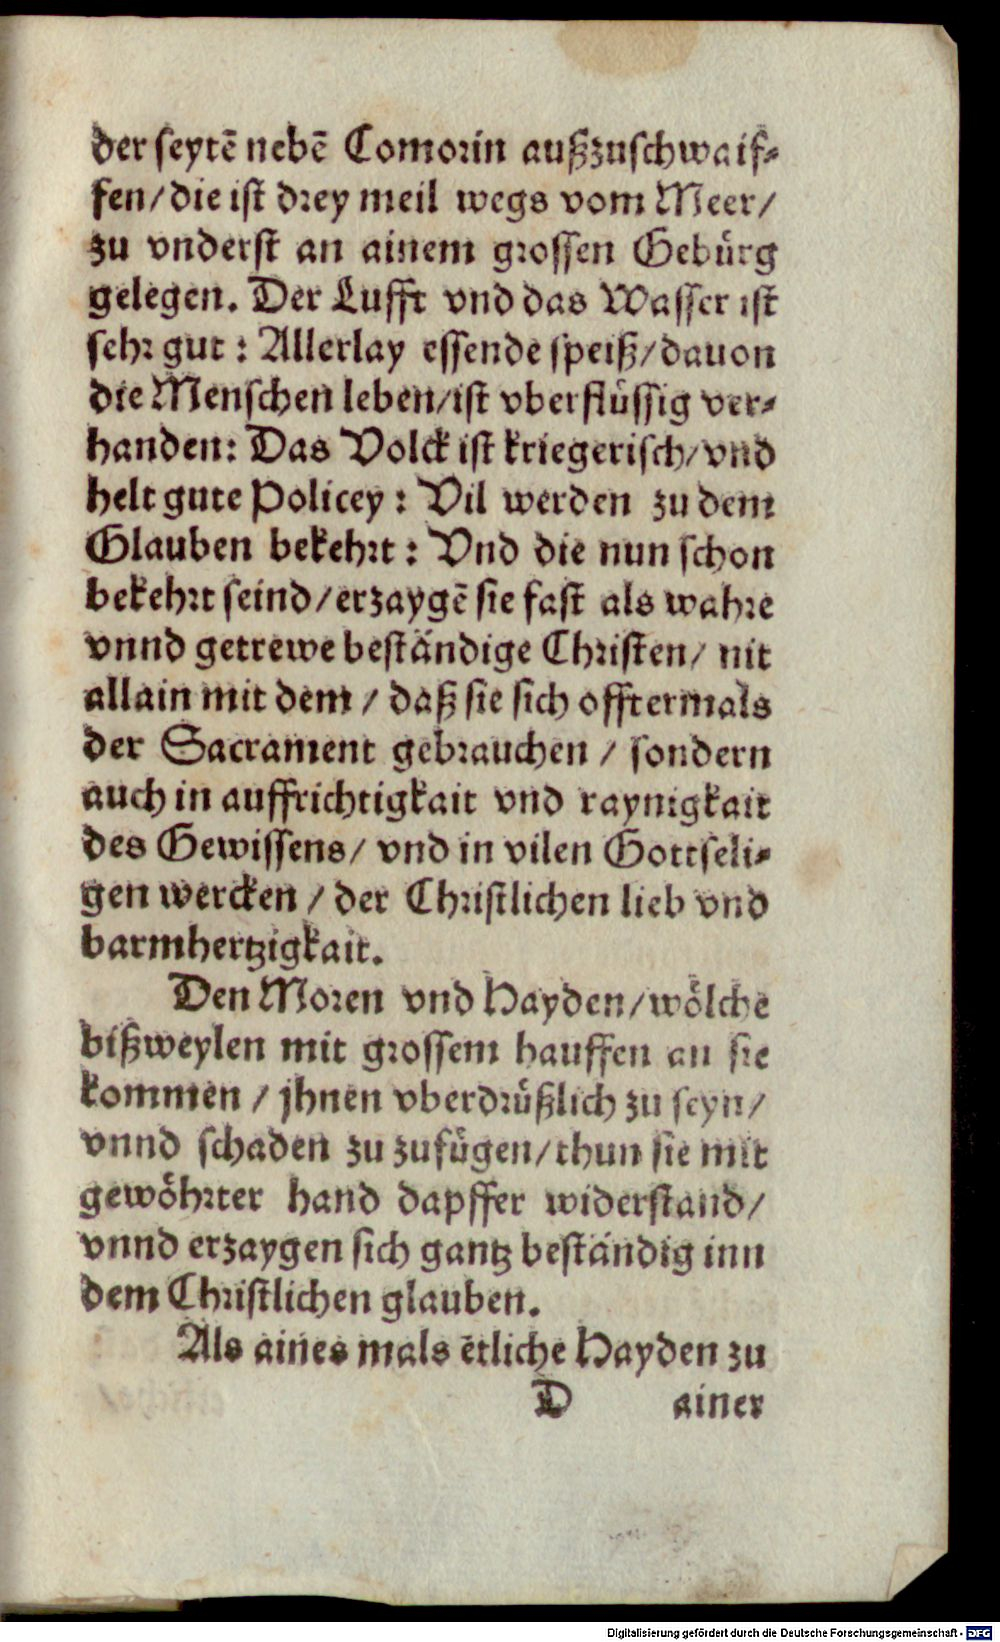 der seytē nebē Comorin außzuschwaif-
fen/ die ist drey meil wegs vom Meer/
zu vnderst an ainem grossen Gebürg
gelegen. Der Lufft vnd das Wasser ist
sehr gut: Allerlay essende speiß/ dauon
die Menschen leben/ ist vberflüssig ver-
handen: Das Volck ist kriegerisch/ vnd
helt gute Policey: Vil werden zu dem
Glauben bekehrt: Vnd die nun schon
bekehrt seind/ erzaygē sie fast als wahre
vnnd getrewe beständige Christen/ nit
allain mit dem/ daß sie sich offtermals
der Sacrament gebrauchen/ sondern
auch in auffrichtigkait vnd raynigkait
des Gewissens/ vnd in vilen Gottseli-
gen wercken/ der Christlichen lieb vnd
barmhertzigkait.
Den Moren vnd Hayden/ wölche
bißweylen mit grossem hauffen an sie
kommen/ jhnen vberdrüßlich zu seyn/
vnnd schaden zu zufügen/ thun sie mit
gewöhrter hand dapffer widerstand/
vnnd erzaygen sich gantz beständig inn
dem Christlichen glauben.
Als aines mals etliche Hayden zu
D ainer
Digitalisierung gefördert durch die Deutsche Forschungsgemeinschaft - DFG